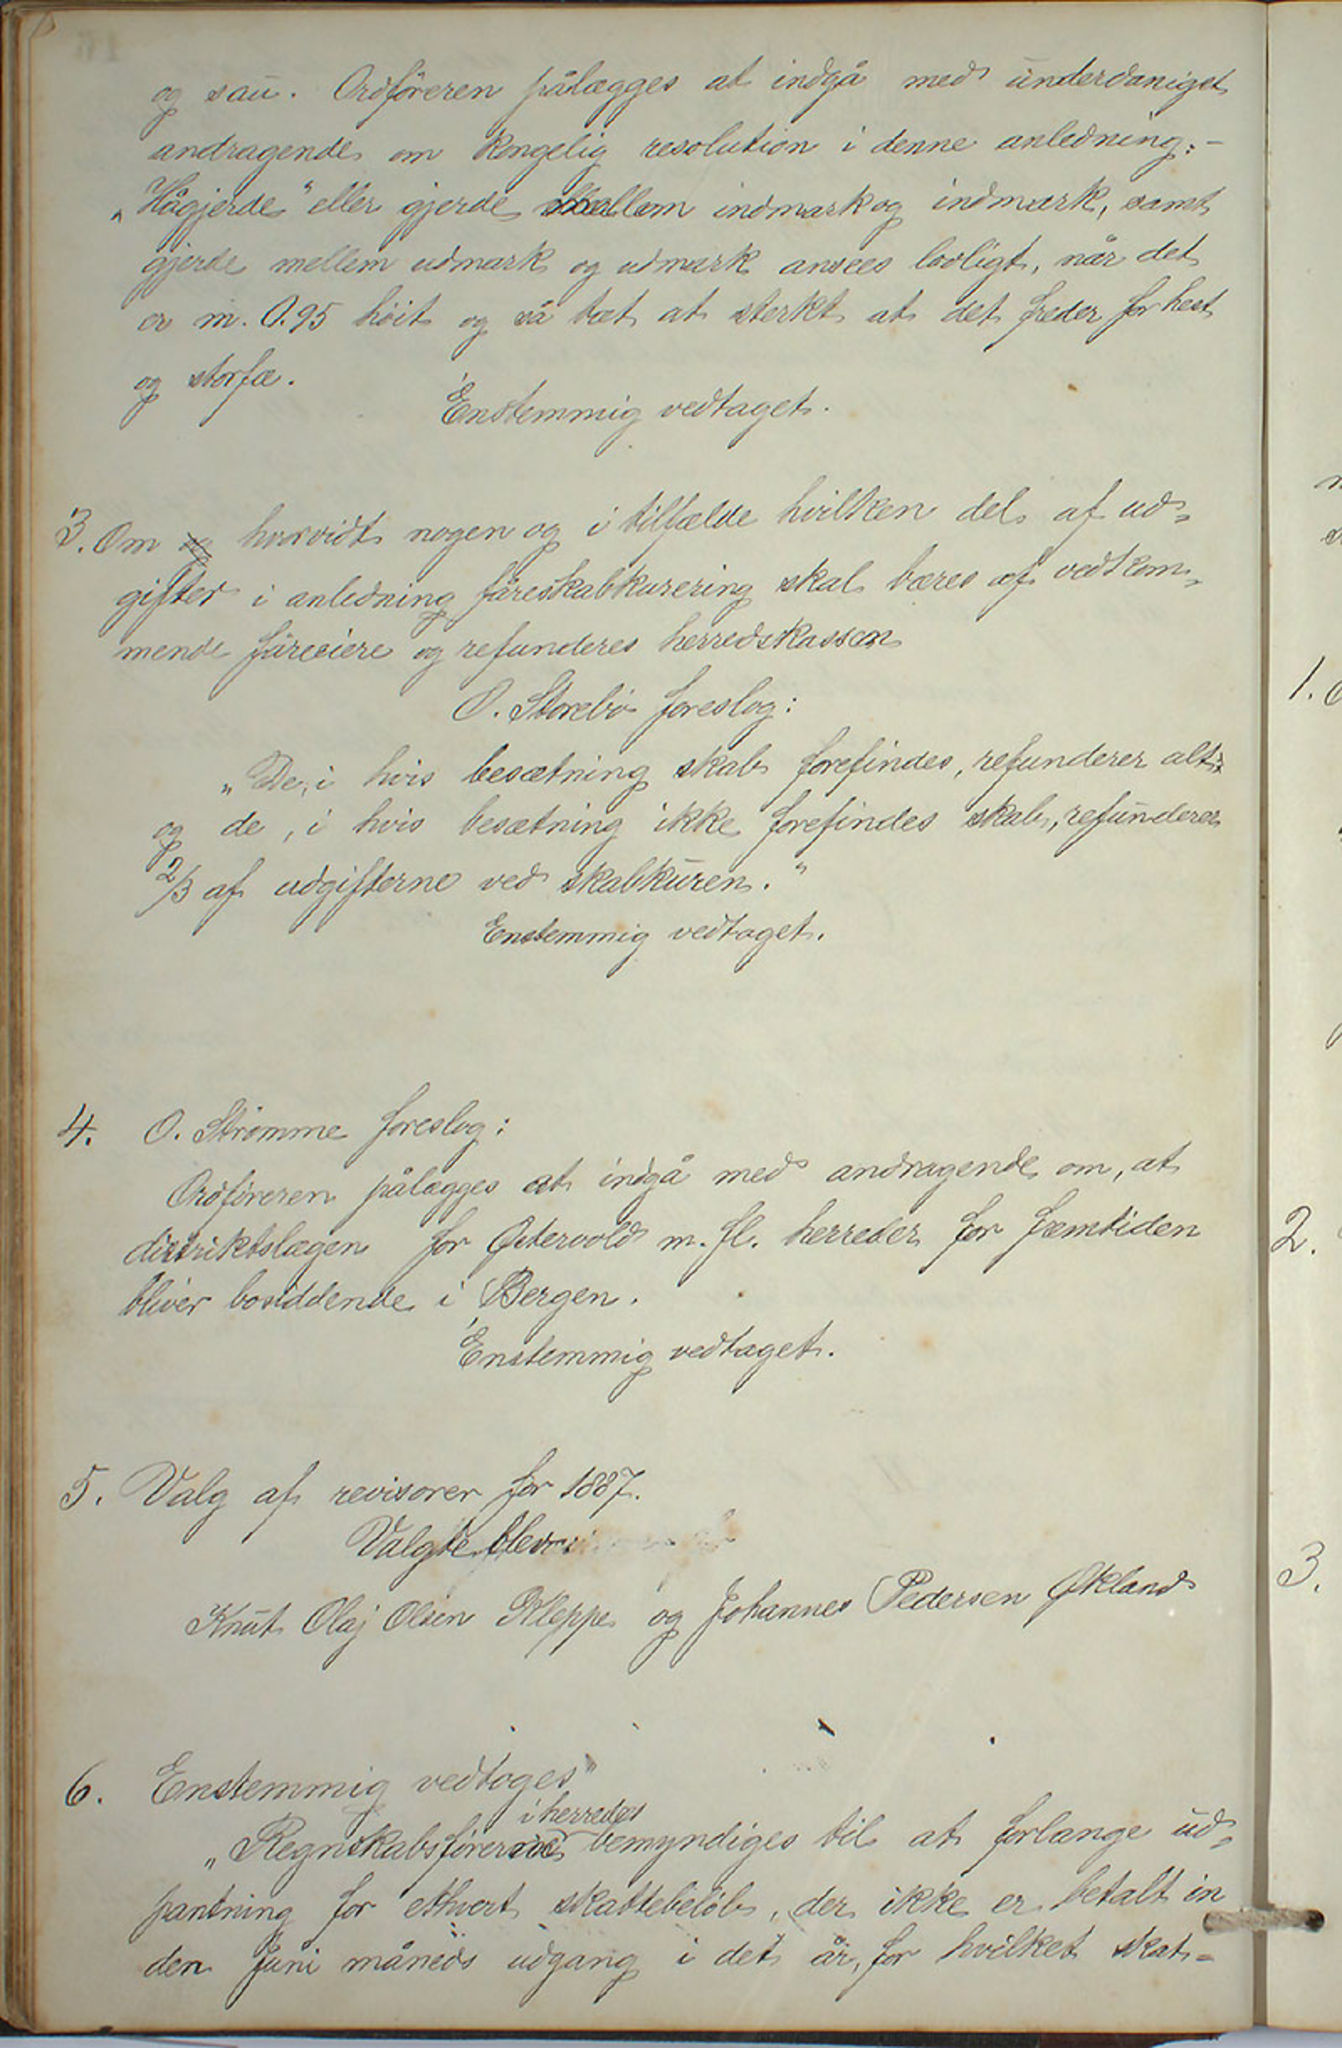 og sau. Ordføreren pålægges at indgå med underdanigst
andragende om kongelig resolution i denne anledning:-
„Hågjerde" eller gjerde mellem indmark og indmark, samt
gjerde mellem udmark og udmark ansees lovligt, når det
er m. 0.95 høit og så tæt at sterkt at det freder for hest
og storfæ.
Enstemmig vedtaget.
3. Om hvorvidt nogen og i tilfælde hvilken del af ud-
gifter i anledning fåreskabkurering skal bæres af vedkom-
mende fåreeiere og refunderes herredskassen
O. Storebø foreslog:
„De, i hvis besætning skab forefindes, refunderer alt,
og de, i hvis besætning ikke forefindes skab, refunderer
2/3 af udgifterne ved skabkuren."
Enstemmig vedtaget.
4. O. Strømme foreslog:
Ordføreren pålægges at indgå med andragende om, at
distriktslægen for Østervold m. fl. herreder for fremtiden
bliver bosiddende i Bergen.
Enstemmig vedtaget.
5. Valg af revisorer for 1887.
Valgte blev:
Knut Olaj Olsen Kleppe og Johannes Pedersen Økland
6. Enstemmig vedtoges"
i herredet
„Regnskabsførerne bemyndiges til at forlange ud-
pantning for ethvert skattebeløb, der ikke er betalt in
den Juni måneds udgang i det år, for hvilket skat-
1.
2.
3.